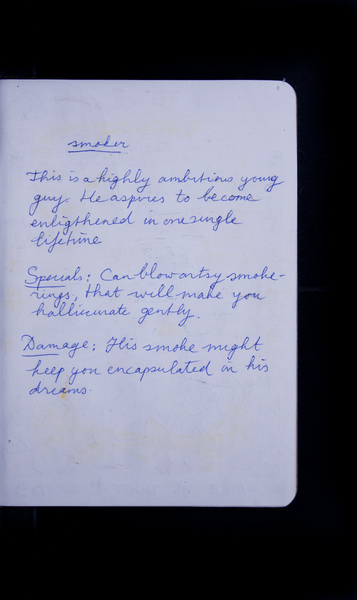 smoker
This is a highly ambitious young
guy. He aspires to become
enligthened in one single
lifetime
Specials: Can blow artsy smoke-
rings, that will make you
hallucinate gently.
Damage: His smoke might
keep you encapsulated in his
dreams.